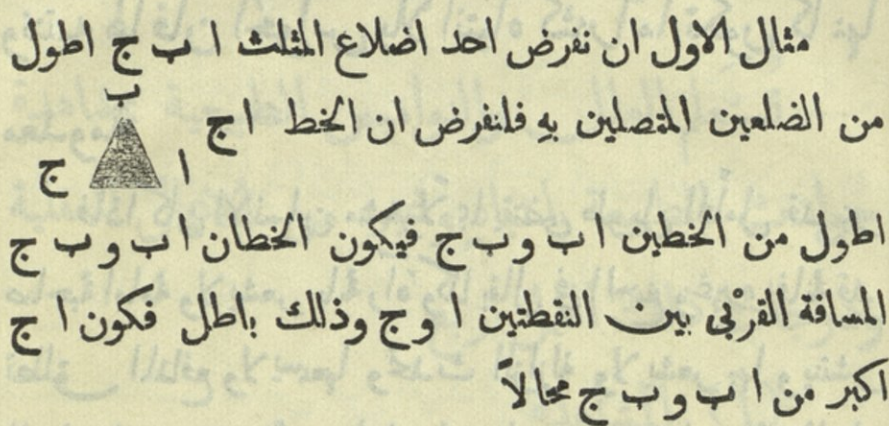 مثال الاول ان نفرض احد اضلاع المثلث ا ب ج اطول
من الضلعين المتصلين بهِ فلنفرض ان الخط ا ج
ب
ا ج
اطول من الخطين ا ب و ب ج فيكون الخطان ا ب و ب ج
المسافة القرْبى بين النقطتين ا و ج وذلك باطل فكون ا ج
اكبر من ا ب و ب ج محالاً